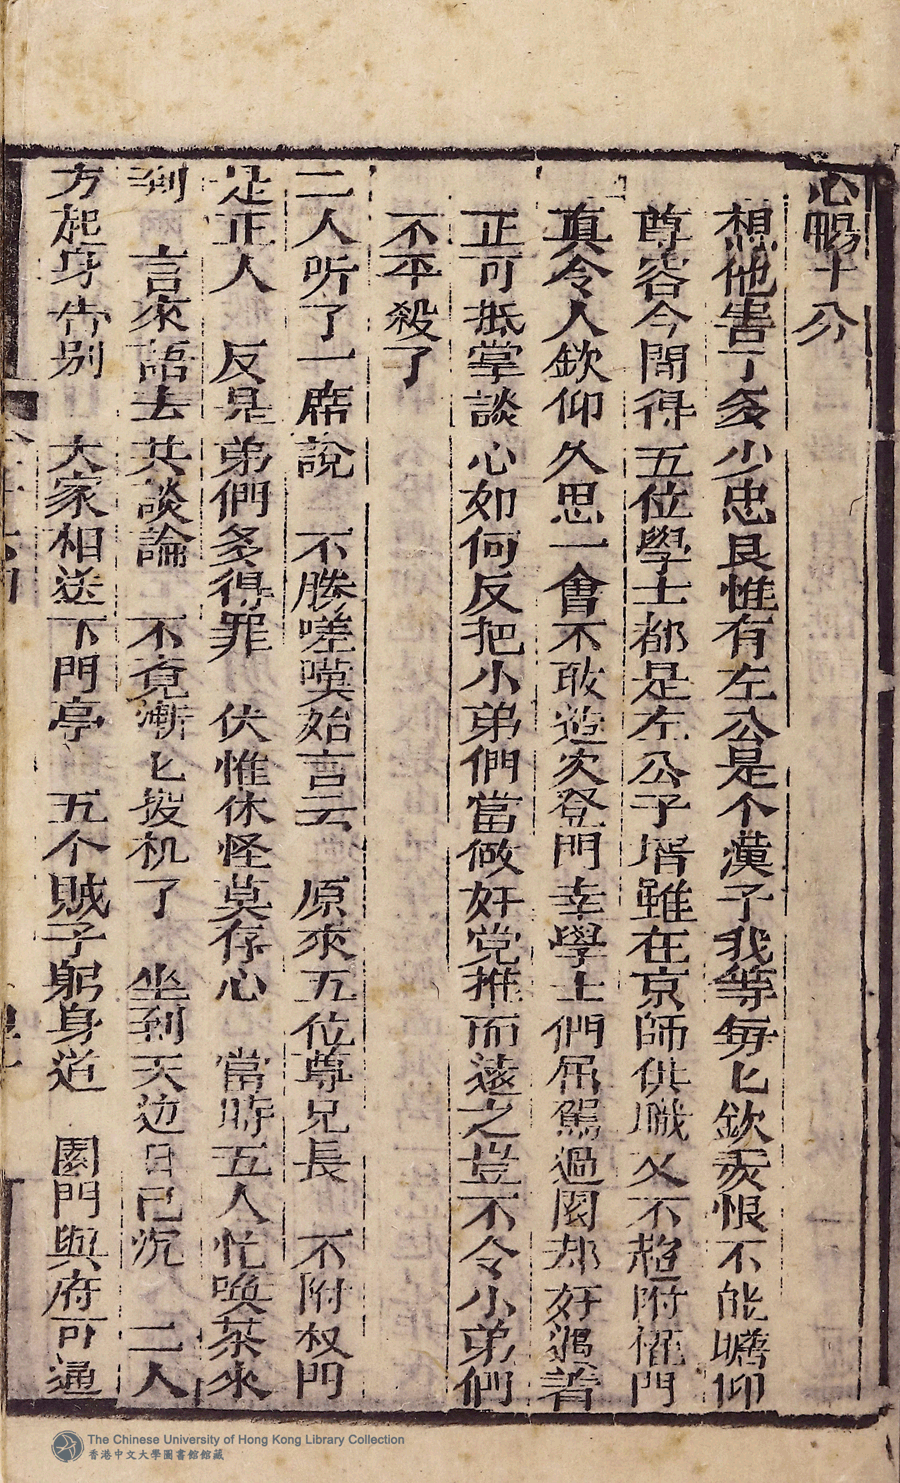 心暢十分
想他害了多少忠良惟有左公是个漢子我等每匕欽羨恨不能瞻仰
尊容今聞得五位學士都是左公子壻雖在京師供職又不趨附權門
真令人欽仰久思一會不敢造次登門幸學士們屈駕過園却好遇着
正可抵掌談心如何反把小弟們當做奸党推而遠之豈不令小弟們
不平殺了
二人听了一席說 不勝嗟嘆始言云 原來五位尊兄長 不附权門
是正人 反是弟們多得罪 伏惟休怪莫存心 當時五人忙喚茶來
到 言來語去共談論 不覔漸匕投机了 坐到天边日已沉 二人
方起身告别 大家相送下門亭 五个賊子躬身道 園門與府可通
The Chinese University of Hong Kong Library Collection
香港中文大學圖書館館藏